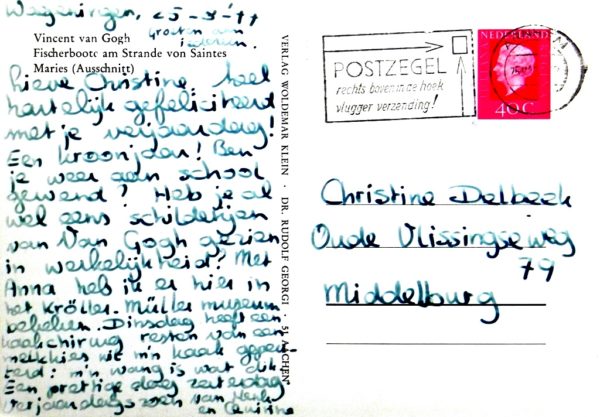 Wageningen, 25-8-'77
Groeten aan
iedereen.
Vincent van Gogh
Fischerboote am Strande von Saintes
Maries (Ausschnitt)
Lieve Christine, heel
hartelijk gefeliciteerd
met je verjaardag!
Een kroonjaar! Ben
je weer aan school
gewend? Heb je al
wel eens schilderijen
van Van Gogh gezien
in werkelijkheid? Met
Anna heb ik er hier in
het Kröller-Müller museum
bekeken. Dinsdag heeft een
kaakchirurg resten van een
melkkies uit m'n kaak geopereerd:
m'n wang is wat dik.
Een prettige dag zaterdag
verjaardagszoen van Henk
en
VERLAG WOLDEMAR KLEIN · DR. RUDOLF GEORGI · 51 AACHEN
POSTZEGEL
rechts boven in de hoek
vlugger verzending!
NEDERLAND
40C
Christine Delbeek
Oude Vlissingseweg
79
Middelburg